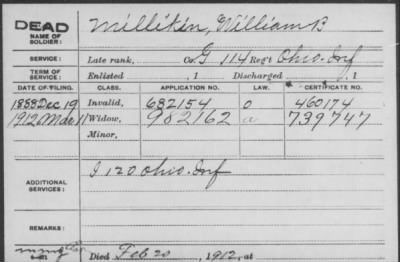 DEAD Millikin, William B
NAME OF SOLDIER:
SERVICE: Late rank, Co. G 114 Reg't Ohio Inf
TERM OF SERVICE: Enlisted , 1 Discharged , 1
DATE OF FILING. CLASS. APPLICATION NO. LAW. CERTIFICATE NO.
1888 Dec 19 Invalid, 682154 O 460174
1912 Mar 11 Widow, 982162 a 739747
Minor,
ADDITIONAL SERVICES: I 120 Ohio Inf
REMARKS:
Died Feb 20 , 1912, at